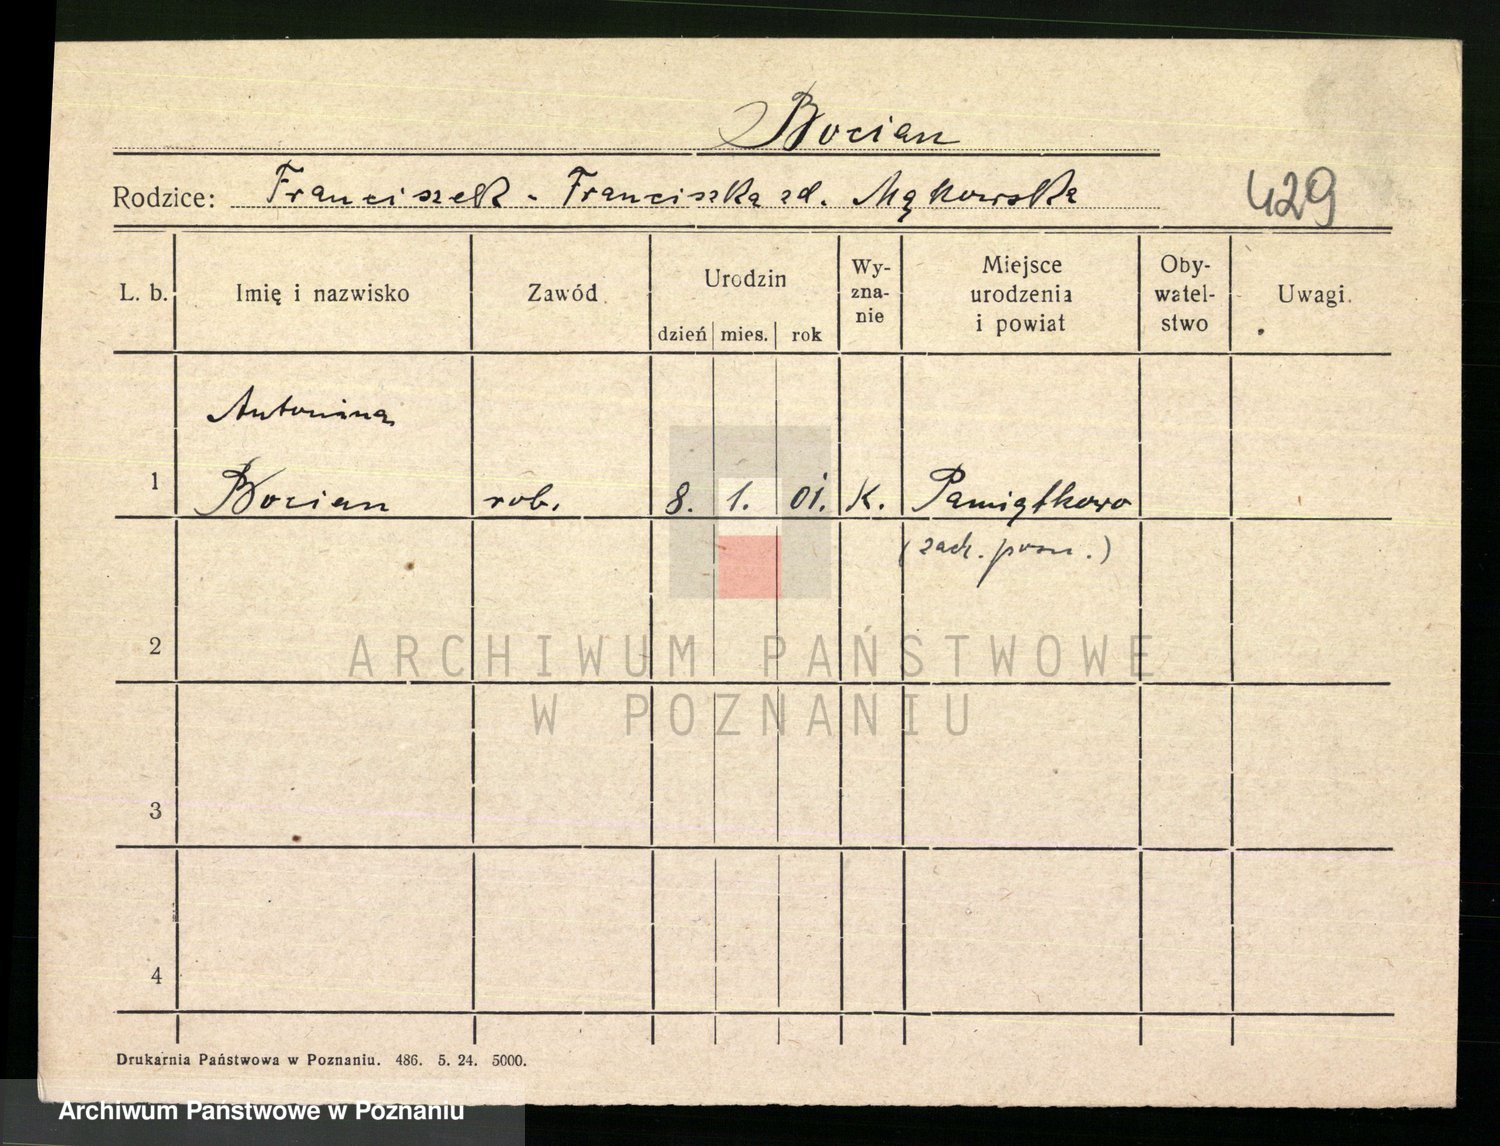 Bocian
Rodzice: Franciszek - Franciszka zd. Mąkowska
429
L. b. Imię i nazwisko Zawód Urodzin dzień mies. rok Wy-zna-nie Miejsce urodzenia i powiat Oby-watel-stwo Uwagi.
Antonina
1 Bocian rob. 8. 1. 01. K. Pamiątkowo
(zach. pozn.)
2
ARCHIWUM PAŃSTWOWE
W POZNANIU
3
4
Drukarnia Państwowa w Poznaniu. 486. 5. 24. 5000.
Archiwum Państwowe w Poznaniu